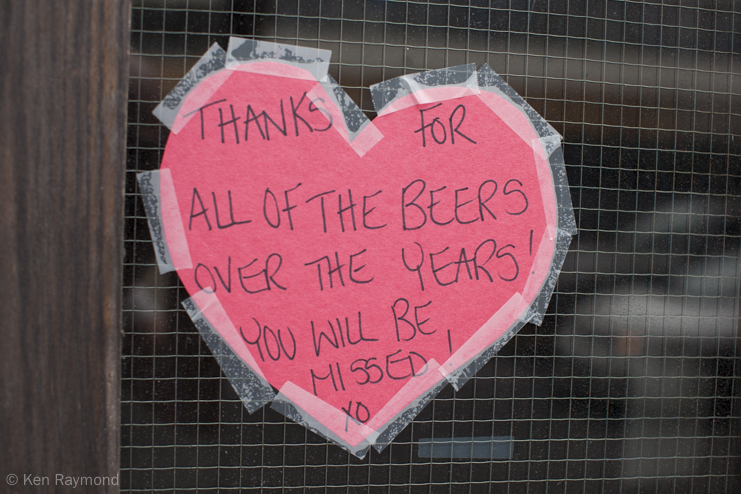 THANKS FOR
ALL OF THE BEERS
OVER THE YEARS!
YOU WILL BE
MISSED!
XO
© Ken Raymond